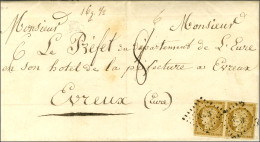 Monsieur
Monsieur
Le Préfet du Département de L'Eure
en son hotel de la préfecture a Evreux
Evreux
(Eure)